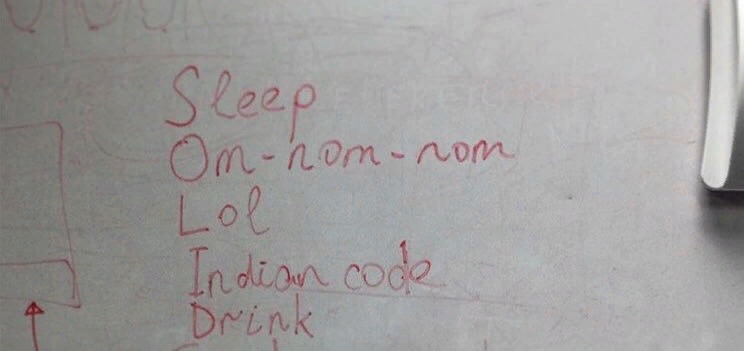 Sleep
Om-nom-nom
Lol
Indian code
Drink